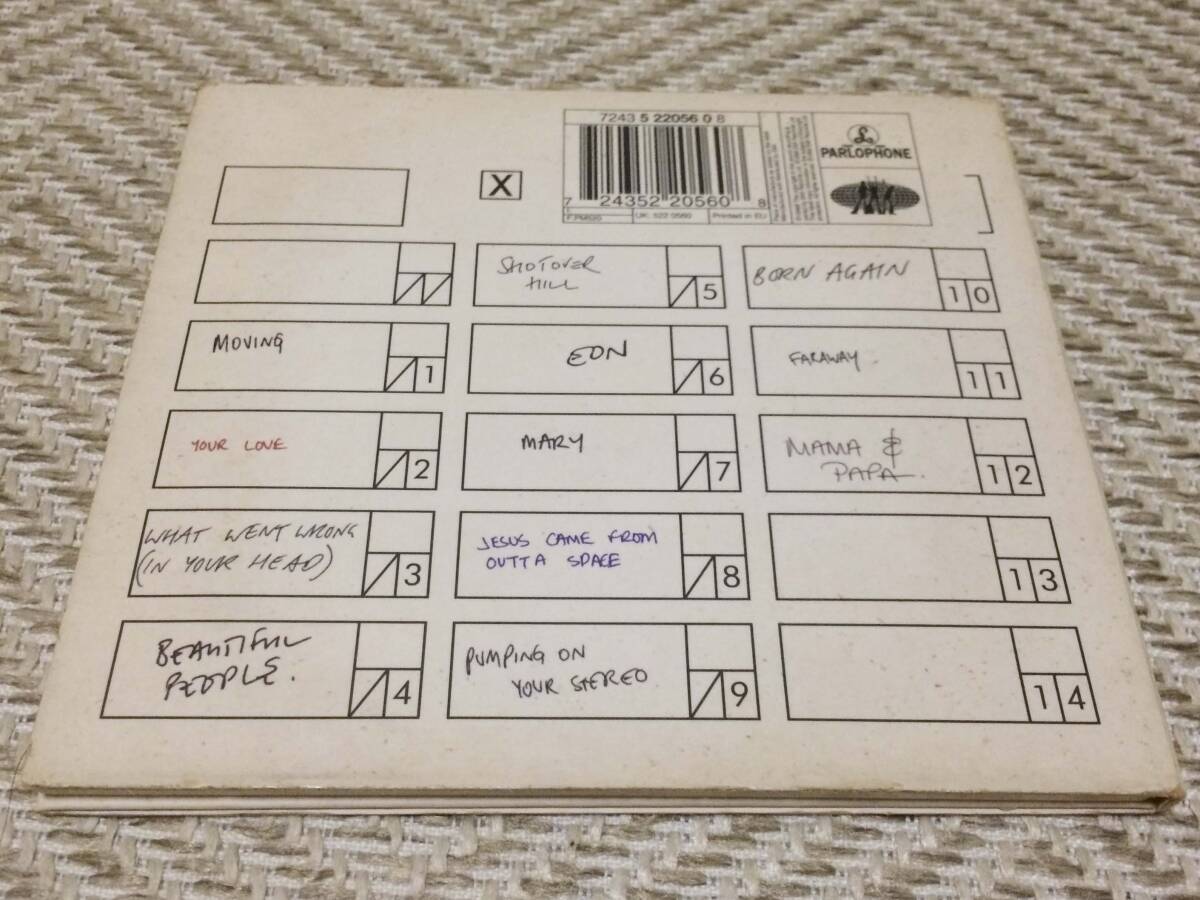 7243 5 22056 0 8
7 24352 20560 8
UK: 522 0560
Printed in EU
PARLOPHONE
X
MOVING
1
YOUR LOVE
2
WHAT WENT WRONG
(IN YOUR HEAD)
3
BEAUTIFUL
PEOPLE.
4
SHOTOVER
HILL
5
EON
6
MARY
7
JESUS CAME FROM
OUTTA SPACE
8
PUMPING ON
YOUR STEREO
9
BORN AGAIN
10
FARAWAY.
11
MAMA &
PAPA.
12
13
14